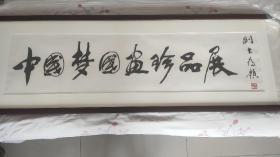 中國梦國画珍品展
刘大为题